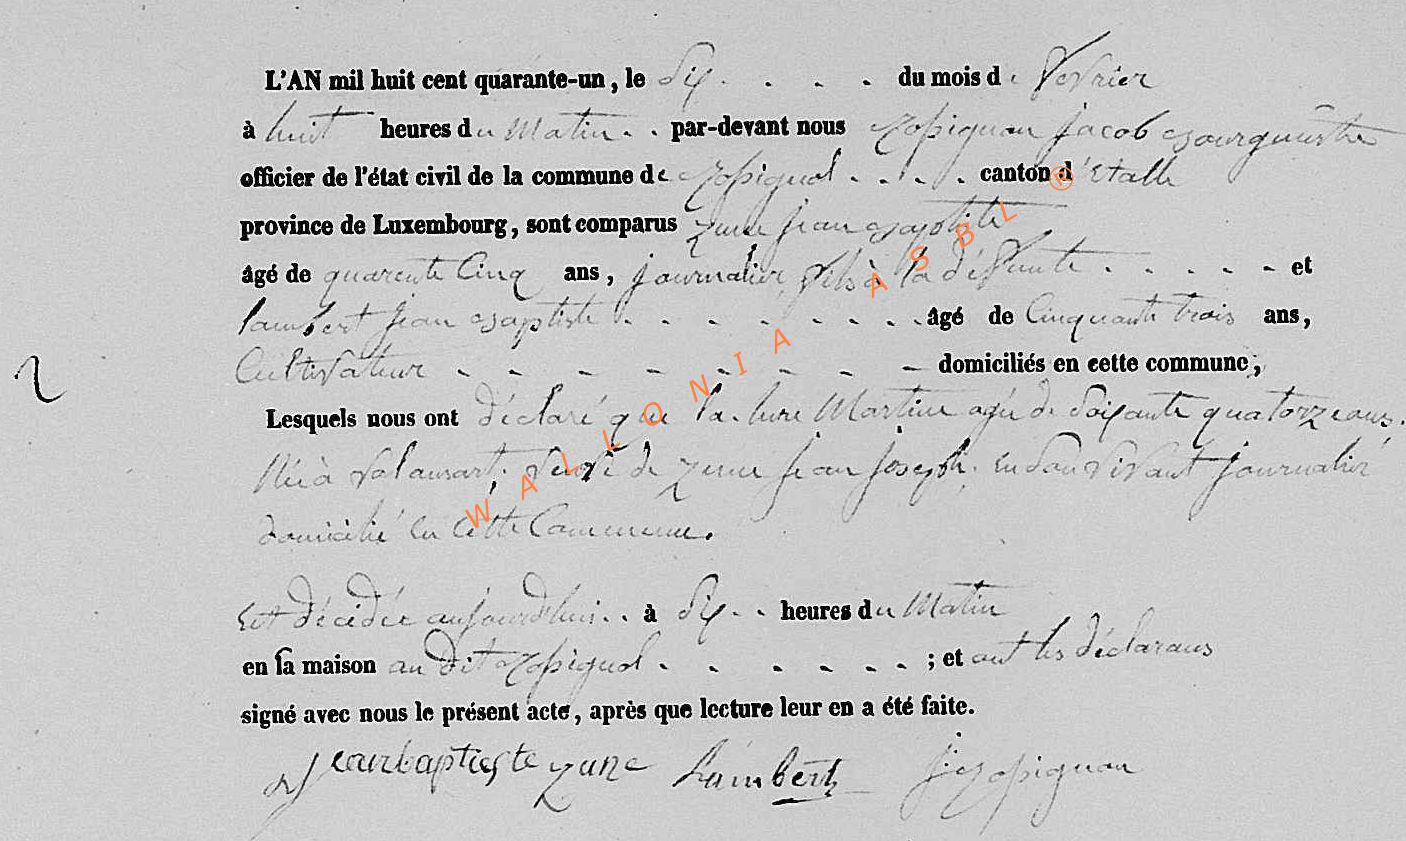 L'AN mil huit cent quarante-un, le Six . . . . du mois de fevrier
à huit heures du Matin . . par-devant nous Jacob Bourguemstre
officier de l'état civil de la commune de . . . . canton d'Etalle
province de Luxembourg, sont comparus Zune jean Baptiste
âgé de quarente Cinq ans, journalier, fils à la défunte . - - - - et
lambert jean Baptiste . - - - - - - - - âgé de Cinquante trois ans,
Cultivateur - - - - - - - - domiciliés en cette commune ;
Lesquels nous ont déclaré que la Martine agée de Soixante quatorze ans.
Née à Valansart, veuve de Zune jean joseph, en son vivant journalier
domicilié en cette Commune.
2
Est décédée aujourdhui . . à Six . . heures du Matin
en sa maison au dit . - - - - - - ; et ont les déclarans
signé avec nous le présent acte, après que lecture leur en a été faite.
Jean baptieste zune Lambert
WALLONIA ASBL